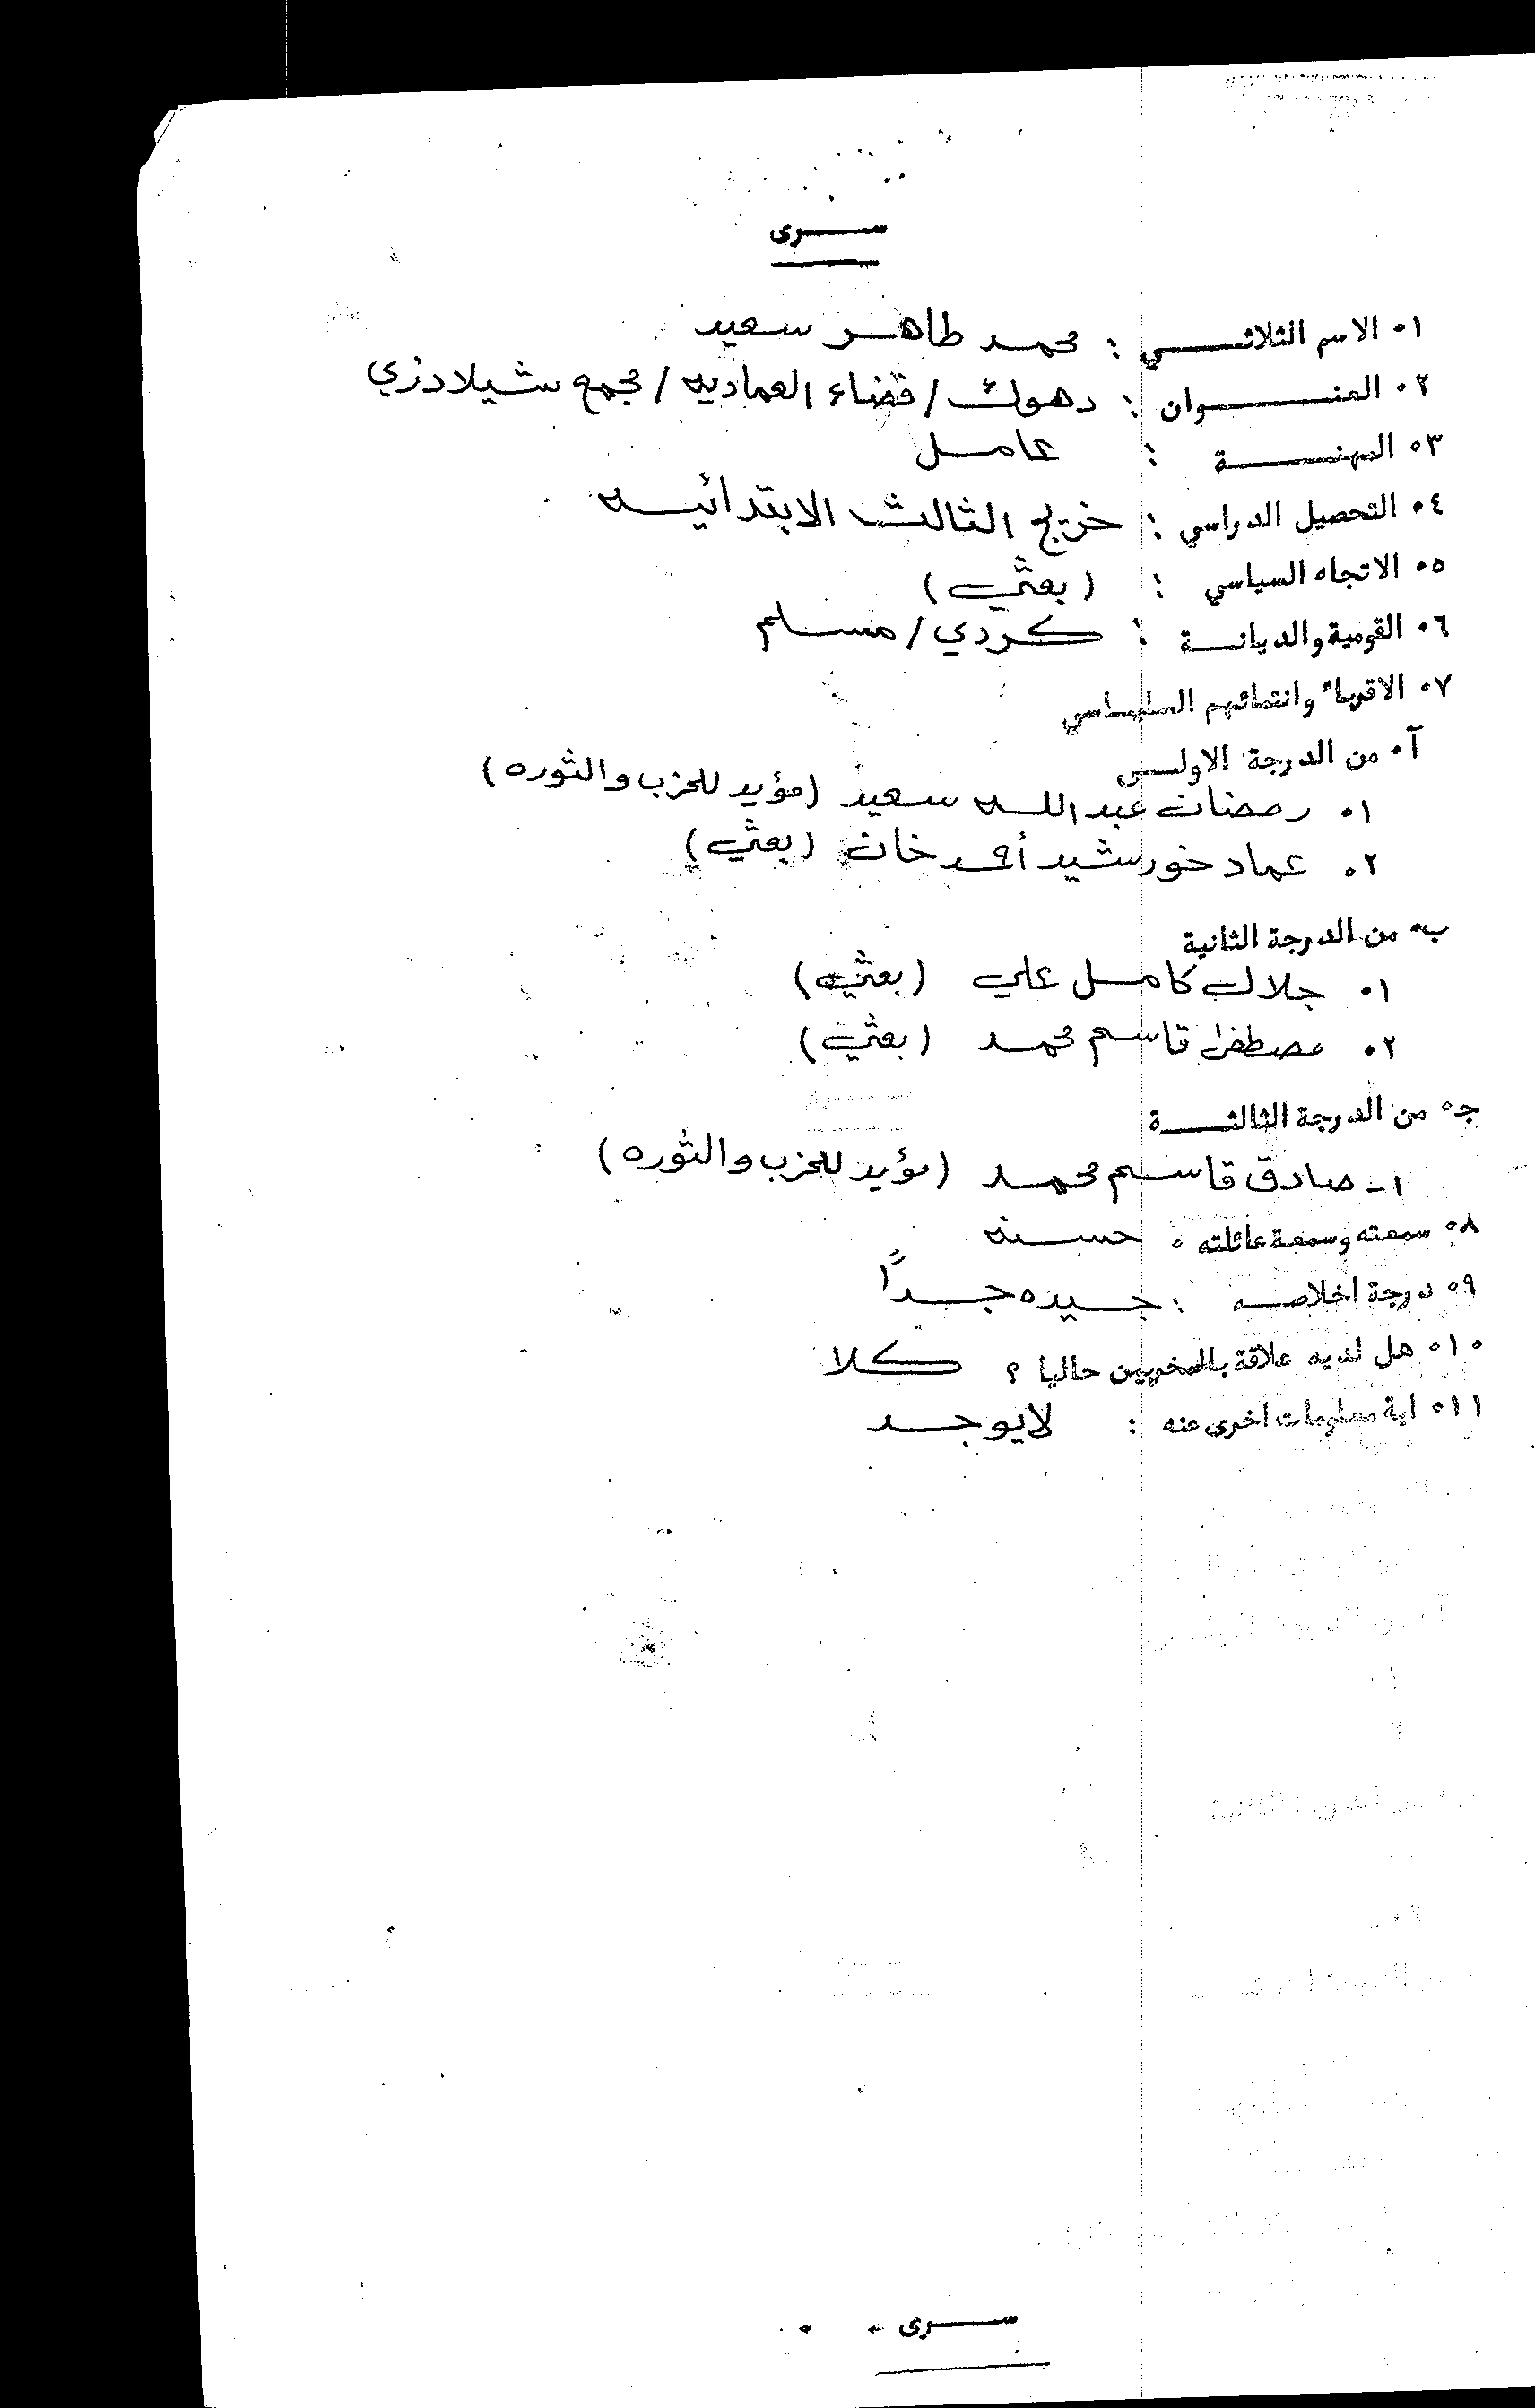 سرى
٠١ الاسم الثلاثي : محمد طاهر سعيد
٠٢ العنوان : دهوك / قضاء العماديه / مجمع شيلادزي
٠٣ المهنة : عامل
٠٤ التحصيل الدراسي : خريج الثالث الابتدائيه
٠٥ الاتجاه السياسي : (بعثي)
٠٦ القومية والديانة : كردي / مسلم
٠٧ الاقرباء وانتمائهم السياسي
آ٠ من الدرجة الاولى
٠١ رمضان عبدالله سعيد (مؤيد للحزب والثوره)
٠٢ عماد خورشيد أحمد خان (بعثي)
ب٠ من الدرجة الثانية
٠١ جلال كامل علي (بعثي)
٠٢ مصطفى قاسم محمد (بعثي)
ج٠ من الدرجة الثالثة
١- صادق قاسم محمد (مؤيد للحزب والثوره)
٠٨ سمعته وسمعة عائلته ٠ حسنه
٠٩ درجة اخلاصه : جيده جداً
٠١٠ هل لديه علاقة بالمخربين حاليا ؟ كلا
٠١١ اية معلومات اخرى عنه : لايوجد
سرى